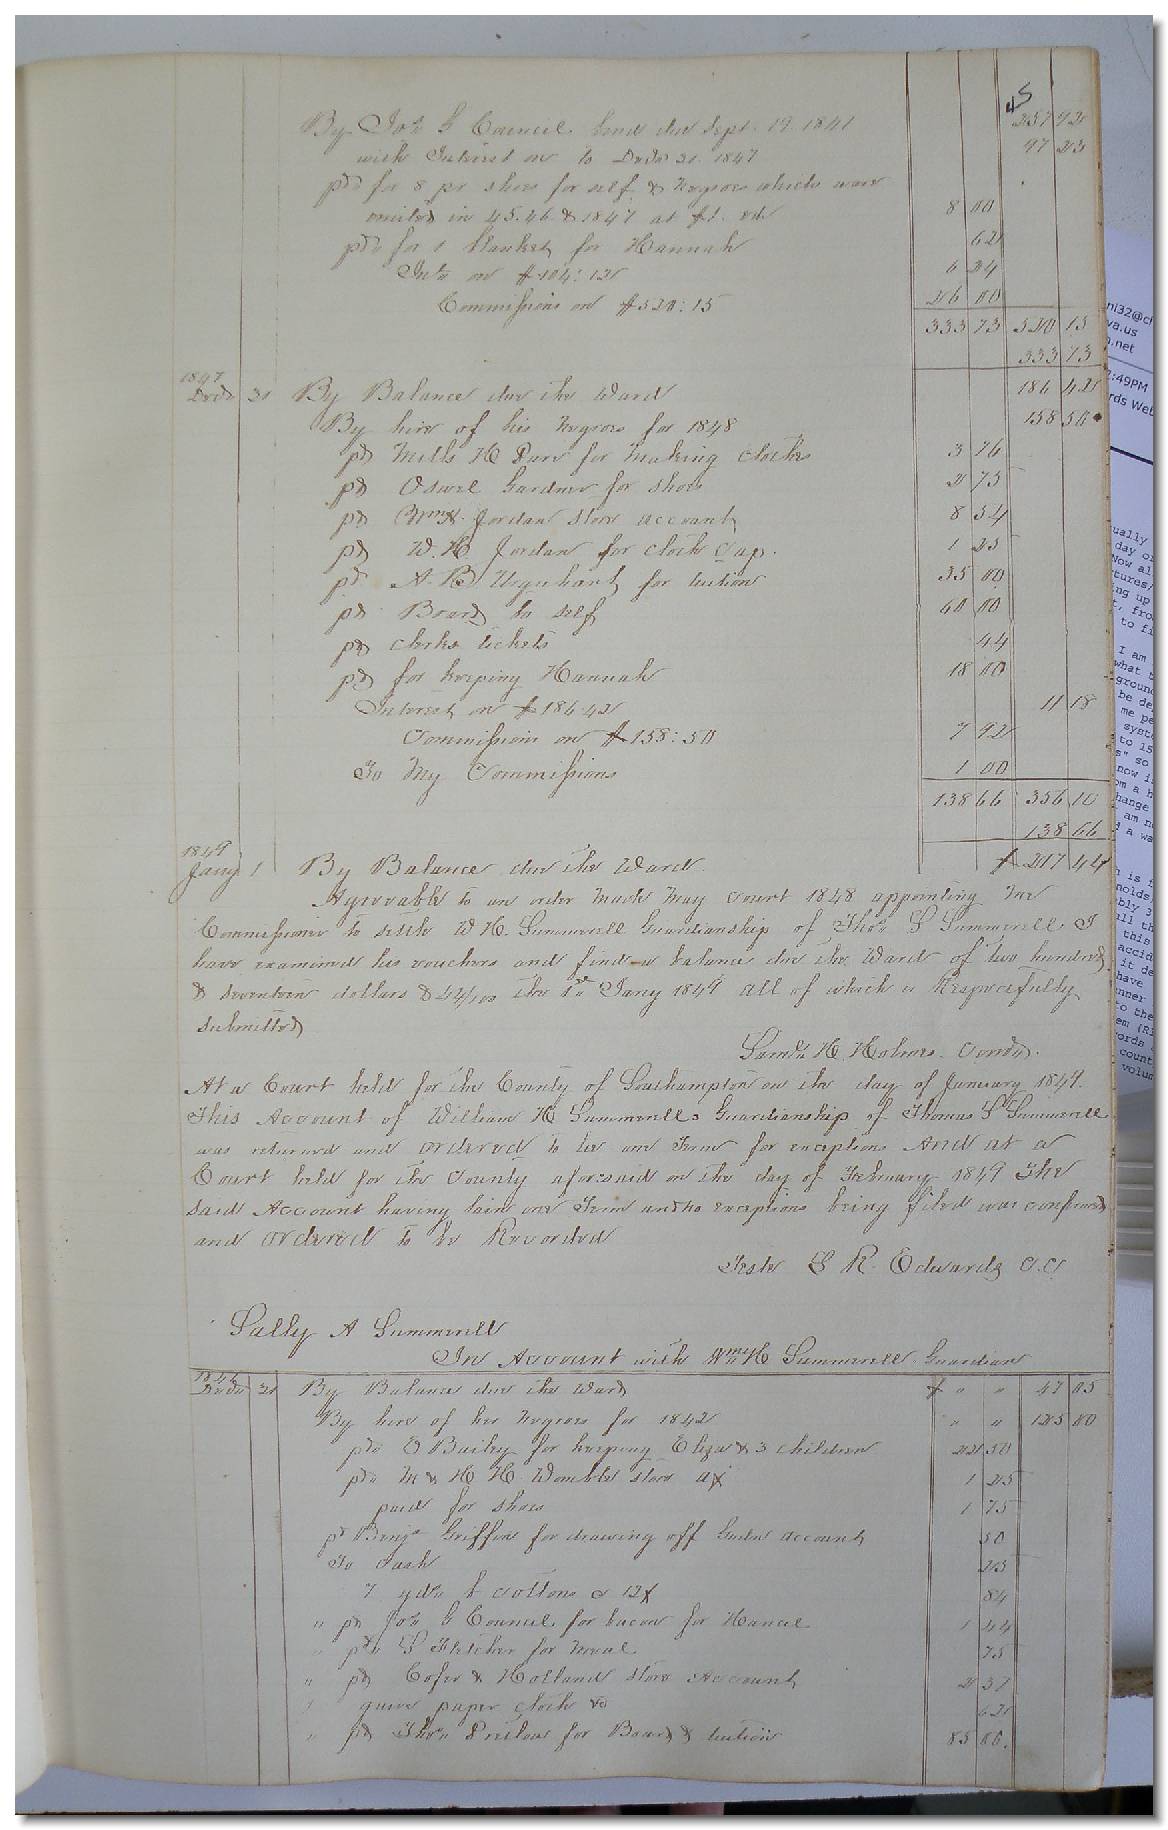 45 257 92
By Jos. G Council bond due Sept. 19 1841
with Interest on to Decr 31. 1847 97 23
pd for 8 pr shoes for self & negroes which were
omitted in 45. 46 & 1847 at $1. ea 8 00
pd for 1 blanket for Hannah 62
Int on $104:12 6 24
Commissions on $520:15 26 00
333 73 520 15
333 73
1847
Decr 31 By Balance due the Ward 186 42
By hire of his negroes for 1848 158 50
pd Mills H Darr for making cloths 3 76
pd Oswel Gardner for shoes 2 75
pd Wm H. Jordan store account 8 54
pd W. H. Jordan for cloth Cap. 1 25
pd A. B Urquhart for tuition 35 00
pd Board to self 60 00
pd clerks tickets 44
pd for keeping Hannah 18 00
Interest on $186.42 11 18
Commission on $158:50 7 92
To My Commissions 1 00
138 66 356 10
138 66
1849
Jany 1 By Balance due the Ward $217 44
Agreeable to an order made May Court 1848 appointing me
Commissioner to settle W H. Summerell Guardianship of Thos S Summerell I
have examined his vouchers and find a balance due the Ward of two hundred
& seventeen dollars & 44/100 the 1st Jany 1849 all of which is Respectfully
submitted
Saml H. Holmes. Comr.
At a Court held for the County of Southampton on the day of January 1849.
This Account of William H Summerells Guardianship of Thomas S Summerell
was returned and ordered to lie one Term for exceptions And at a
Court held for the County aforesaid on the day of February 1849 The
said Account having lain one Term and no exceptions being filed was confirmed
and ordered to be Recorded
Teste L R. Edwards C.C
Sally A Summerell
In Account with Wm H Summerell Guardian
Decr 31 By Balance due the Ward $ " " 47 05
By hire of her negroes for 1842 " " 125 00
pd E Bailey for keeping Eliza & 3 children 22 50
pd M & H H. Womble store a/c 1 25
paid for shoes 1 75
pd Benja Griffin for drawing off Gudn account 50
To Cash 25
7 yds cotton @ 12 84
" pd Jos G Council for bacon for Hance 1 44
" pd S Fletcher for 75
" pd Cofer & Holland store Account 2 37
quire paper cloth &c 62
" pd Thos Pretlow for Board & tuition 85 00.